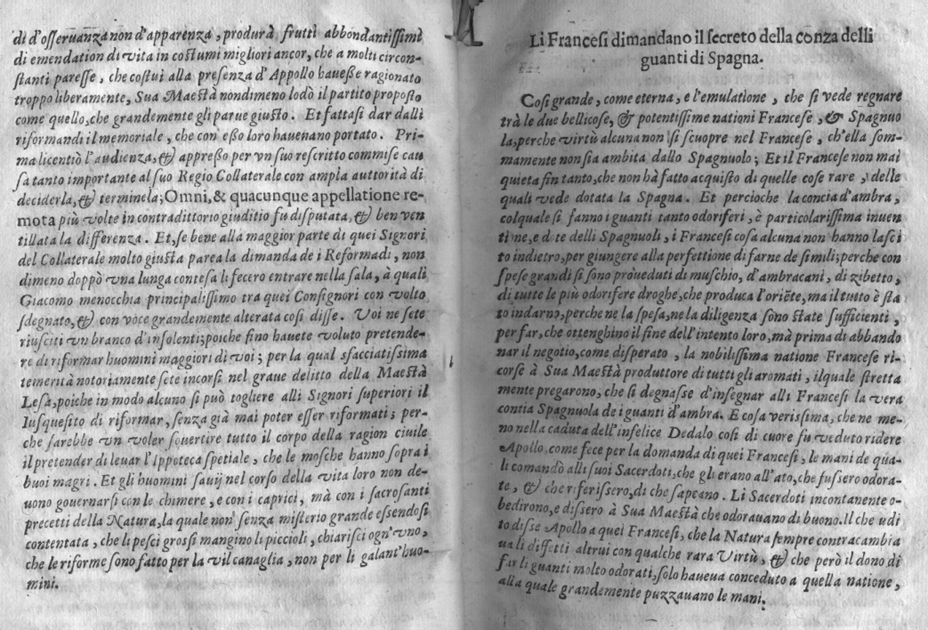 di d'osseruanza non d'apparenza, produrà frutti abbondantissimi
di emendation di vita in costumi migliori ancor, che a molti circon-
stanti paresse, che costui alla presenza d'Appollo hauesse ragionato
troppo liberamente, Sua Maestà nondimeno lodò il partito proposto
come quello, che grandemente gli parue giusto. Et fattasi dar dalli
riformandi il memoriale, che con esso loro haueuano portato. Pri-
ma licentiò l'audienza, & appresso per vn suo rescritto commise cau
sa tanto importante al suo Regio Collaterale con ampla auttorità di
deciderla, & terminela; Omni, & quacunque appellatione re-
mota più volte in contradittorio giuditio fu disputata, & ben ven
tillata la differenza. Et, se bene alla maggior parte di quei Signori
del Collaterale molto giusta parea la dimanda de i Reformadi, non
dimeno doppò vna lunga contesa li fecero entrare nella sala, à quali
Giacomo menocchia principalissimo tra quei Consignori con volto
sdegnato, & con voce grandemente alterata così disse. Voi ne sete
riusciti vn branco d'insolenti; poiche fino hauete voluto pretende-
re di riformar huomini maggiori di voi; per la qual sfacciatissima
temerità notoriamente sete incorsi nel graue delitto della Maestà
Lesa, poiche in modo alcuno si può togliere alli Signori superiori il
Iusquesito di riformar, senza già mai poter esser riformati; per-
che sarebbe vn voler souertire tutto il corpo della ragion ciuile
il pretender di leuar l'Ippoteca spetiale, che le mosche hanno sopra i
buoi magri. Et gli huomini sauij nel corso della vita loro non de-
uono gouernarsi con le chimere, e con i caprici, mà con i sacrosanti
precetti della Natura, la quale non senza misterio grande essendosi
contentata, che li pesci grossi mangino li piccioli, chiarisci ogn'vno,
che le riforme sono fatto per la vil canaglia, non per li galant'huo-
mini.
Li Francesi dimandano il secreto della conza delli
guanti di Spagna.
Cosi grande, come eterna, e l'emulatione, che si vede regnare
trà le due bellicose, & potentissime nationi Francese, & Spagnuo
la, perche virtù alcuna non si scuopre nel Francese, ch'ella som-
mamente non sia ambita dallo Spagnuolo; Et il Francese non mai
quieta fin tanto, che non hà fatto acquisto di quelle cose rare, delle
quali vede dotata la Spagna. Et percioche la concia d'ambra,
col quale si fanno i guanti tanto odoriferi, è particolarissima inuen
tione, e dote delli Spagnuoli, i Francesi cosa alcuna non hanno lasci
to indietro, per giungere alla perfettione di farne de simili; perche con
spese grandi si sono proueduti di muschio, d'ambracani, di zibetto,
di tutte le più odorifere droghe, che produca l'oriēte, ma il tutto è sta
to indarno, perche ne la spesa, ne la diligenza sono state sufficienti,
per far, che ottenghino il fine dell'intento loro, mà prima di abbando
nar il negotio, come disperato, la nobilissima natione Francese ri-
corse à Sua Maestà produttore di tutti gli aromati, il quale stretta
mente pregarono, che si degnasse d'insegnar alli Francesi la vera
contia Spagnuola de i guanti d'ambra. E cosa verissima, che ne me-
no nella caduta dell'infelice Dedalo così di cuore fu veduto ridere
Apollo, come fece per la domanda di quei Francesi, le mani de qua-
li comandò alli suoi Sacerdoti, che gli erano all'ato, che fussero odora-
te, & che riferissero, di che sapeano. Li Sacerdoti incontanente o-
bedirono, e dissero à Sua Maestà che odorauano di buono. Il che udi
to disse Apollo a quei Francesi, che la Natura sempre contracambia
ua li diffetti altrui con qualche rara Virtù, & che però il dono di
far li guanti molto odorati, solo haueua conceduto a quella natione,
alla quale grandemente puzzauano le mani.